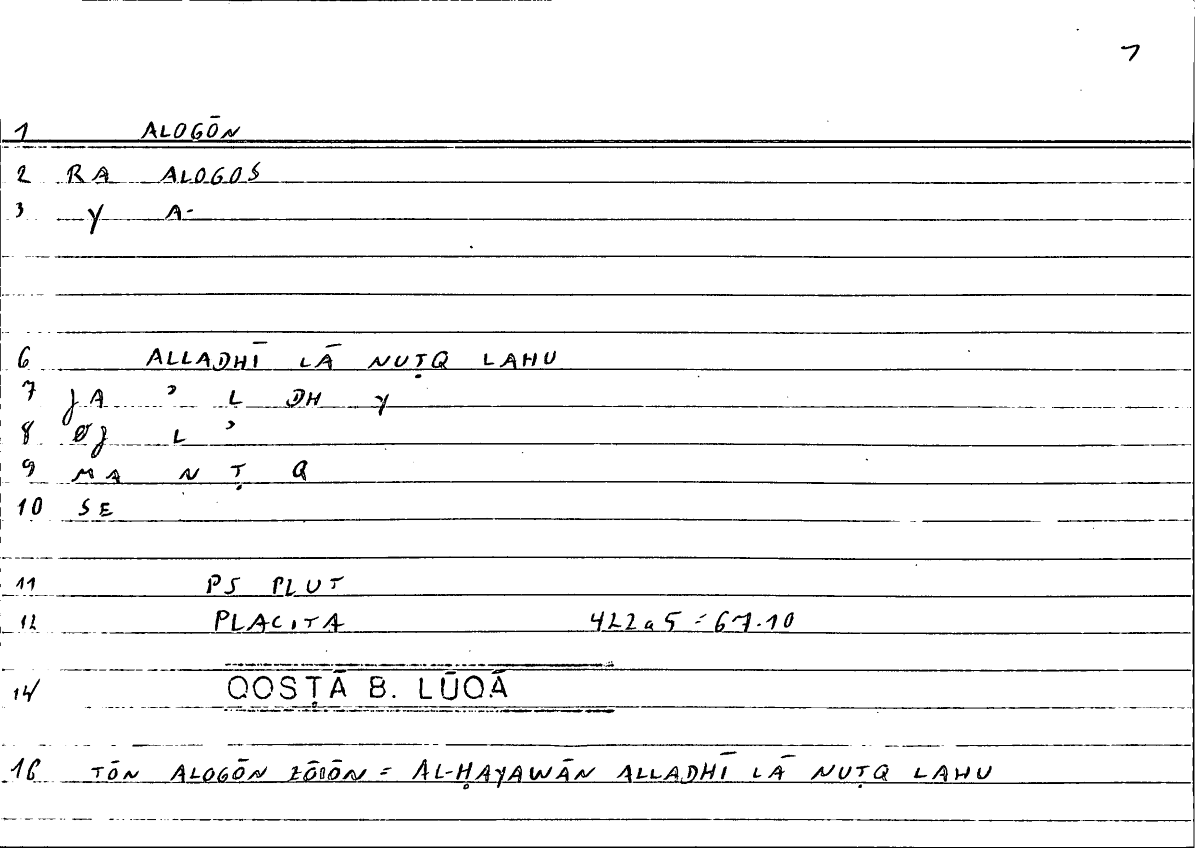 7
1 ALOGŌN
2 RA ALOGOS
3 Y A-
6 ALLADHĪ LĀ NUṬQ LAHU
7 JA ʾ L DH Y
8 ØJ L ʾ
9 MA N Ṭ Q
10 SE
11 PS PLUT
12 PLACITA 422a5 = 67.10
14 QOSṬĀ B. LŪQĀ
16 TŌN ALOGŌN ZŌIŌN = AL-ḤAYAWĀN ALLADHĪ LĀ NUṬQ LAHU